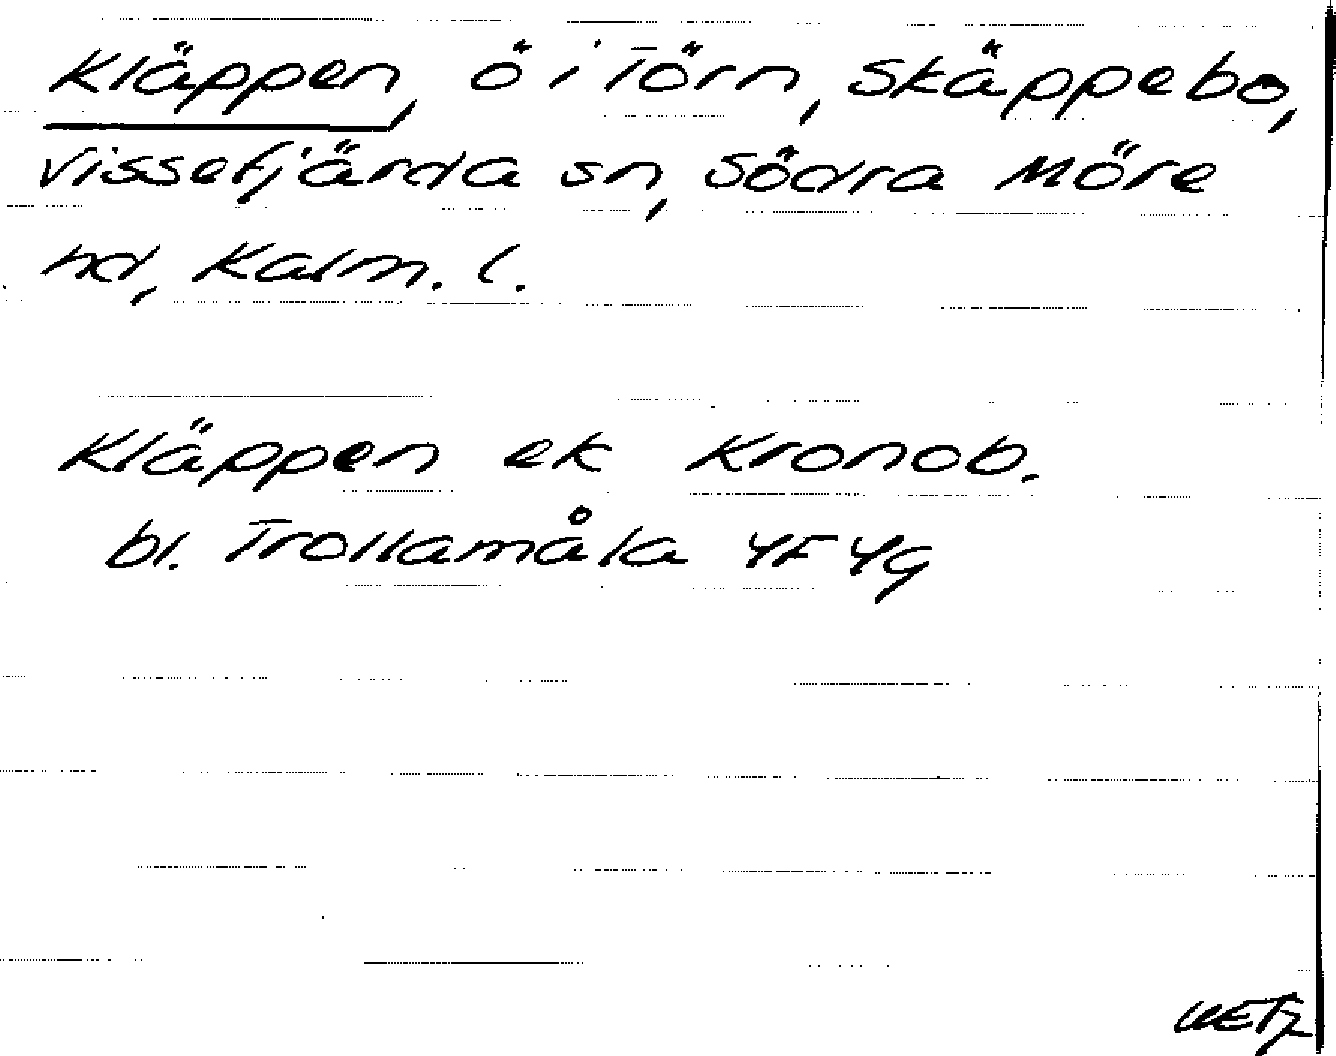 Kläppen, ö i Törn, Skäppebo,
Vissefjärda sn, Södra Möre
hd, Kalm. l.
Kläppen ek Kronob.
bl. Trollamåla 4F 4g